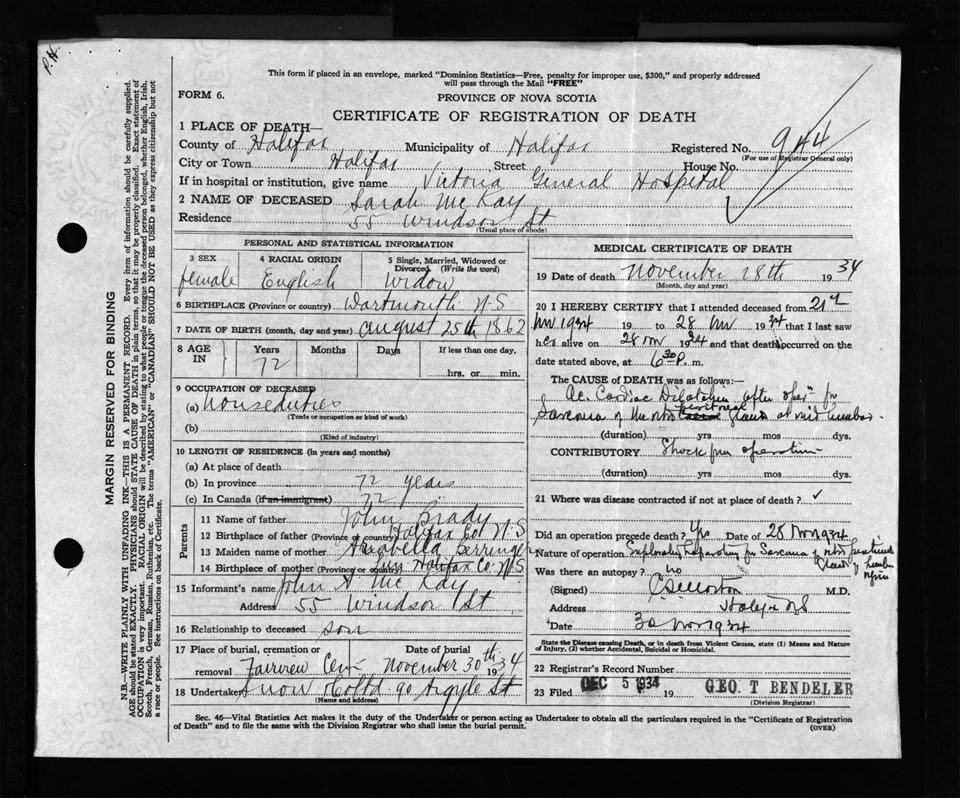 P.H.
This form if placed in an envelope, marked "Dominion Statistics—Free, penalty for improper use, $300," and properly addressed
will pass through the Mail "FREE"
FORM 6.
PROVINCE OF NOVA SCOTIA
CERTIFICATE OF REGISTRATION OF DEATH
1 PLACE OF DEATH—
County of Halifax Municipality of Halifax Registered No. 944
(For use of Registrar General only)
City or Town Halifax Street House No.
If in hospital or institution, give name Victoria General Hospital
2 NAME OF DECEASED Sarah McKay
Residence 55 Windsor St
(Usual place of abode)
PERSONAL AND STATISTICAL INFORMATION
3 SEX 4 RACIAL ORIGIN 5 Single, Married, Widowed or
Divorced. (Write the word)
female English Widow
6 BIRTHPLACE (Province or country) Dartmouth N.S
7 DATE OF BIRTH (month, day and year) august 25th 1862
8 AGE IN Years Months Days If less than one day,
72 hrs. or min.
9 OCCUPATION OF DECEASED
(a) Houseduties
(Trade or occupation or kind of work)
(b)
(Kind of industry)
10 LENGTH OF RESIDENCE (in years and months)
(a) At place of death
(b) In province 72 years
(c) In Canada (if an immigrant) 72
Parents
11 Name of father John Brady
12 Birthplace of father (Province or country) Halifax Co. N.S
13 Maiden name of mother Arabella
14 Birthplace of mother (Province or country) Halifax Co. N.S
15 Informant's name John A. McKay
Address 55 Windsor St
16 Relationship to deceased son
17 Place of burial, cremation or Date of burial
removal Fairview Cem November 30th 1934
18 Undertaker Snow & Co Ltd 90 Argyle St
(Name and address)
MEDICAL CERTIFICATE OF DEATH
19 Date of death November 28th 1934
(Month, day and year)
20 I HEREBY CERTIFY that I attended deceased from 21st
Nov 1934 19 to 28 Nov 1934 that I last saw
her alive on 28 Nov 1934 and that death occurred on the
date stated above, at 6.30 P. m.
The CAUSE OF DEATH was as follows:—
Ac. Cardiac Dilatation after oper" for
Sarcoma of the retro peritoneal glands at mid lumbar
(duration) yrs mos dys.
CONTRIBUTORY Shock from operation
(duration) yrs mos dys.
21 Where was disease contracted if not at place of death? ✓
Did an operation precede death? Yes Date of 28 Nov 1934
Nature of operation Exploratory Laparotomy for Sarcoma of retro peritoneal
Glands of lumbar
region
Was there an autopsy? no
(Signed) M.D.
Address Halifax NS
Date 30 Nov 1934
State the Disease causing Death, or in death from Violent Causes, state (1) Means and Nature
of Injury, (2) whether Accidental, Suicidal or Homicidal.
22 Registrar's Record Number
23 Filed DEC 5 1934 19 GEO. T BENDELER
(Division Registrar)
Sec. 46—Vital Statistics Act makes it the duty of the Undertaker or person acting as Undertaker to obtain all the particulars required in the "Certificate of Registration
of Death" and to file the same with the Division Registrar who shall issue the burial permit.
(OVER)
MARGIN RESERVED FOR BINDING
N.B.—WRITE PLAINLY WITH UNFADING INK—THIS IS A PERMANENT RECORD. Every item of information should be carefully supplied.
AGE should be stated EXACTLY. PHYSICIANS should STATE CAUSE OF DEATH in plain terms, so that it may be properly classified. Exact statement of
OCCUPATION is very important. RACIAL ORIGIN will be described by stating to what people or tongue the deceased person belonged, whether English, Irish,
Scotch, French, German, Russian, Ruthenian, etc. The terms "AMERICAN" or "CANADIAN" SHOULD NOT BE USED as they express citizenship but not
a race or people. See instructions on back of Certificate.